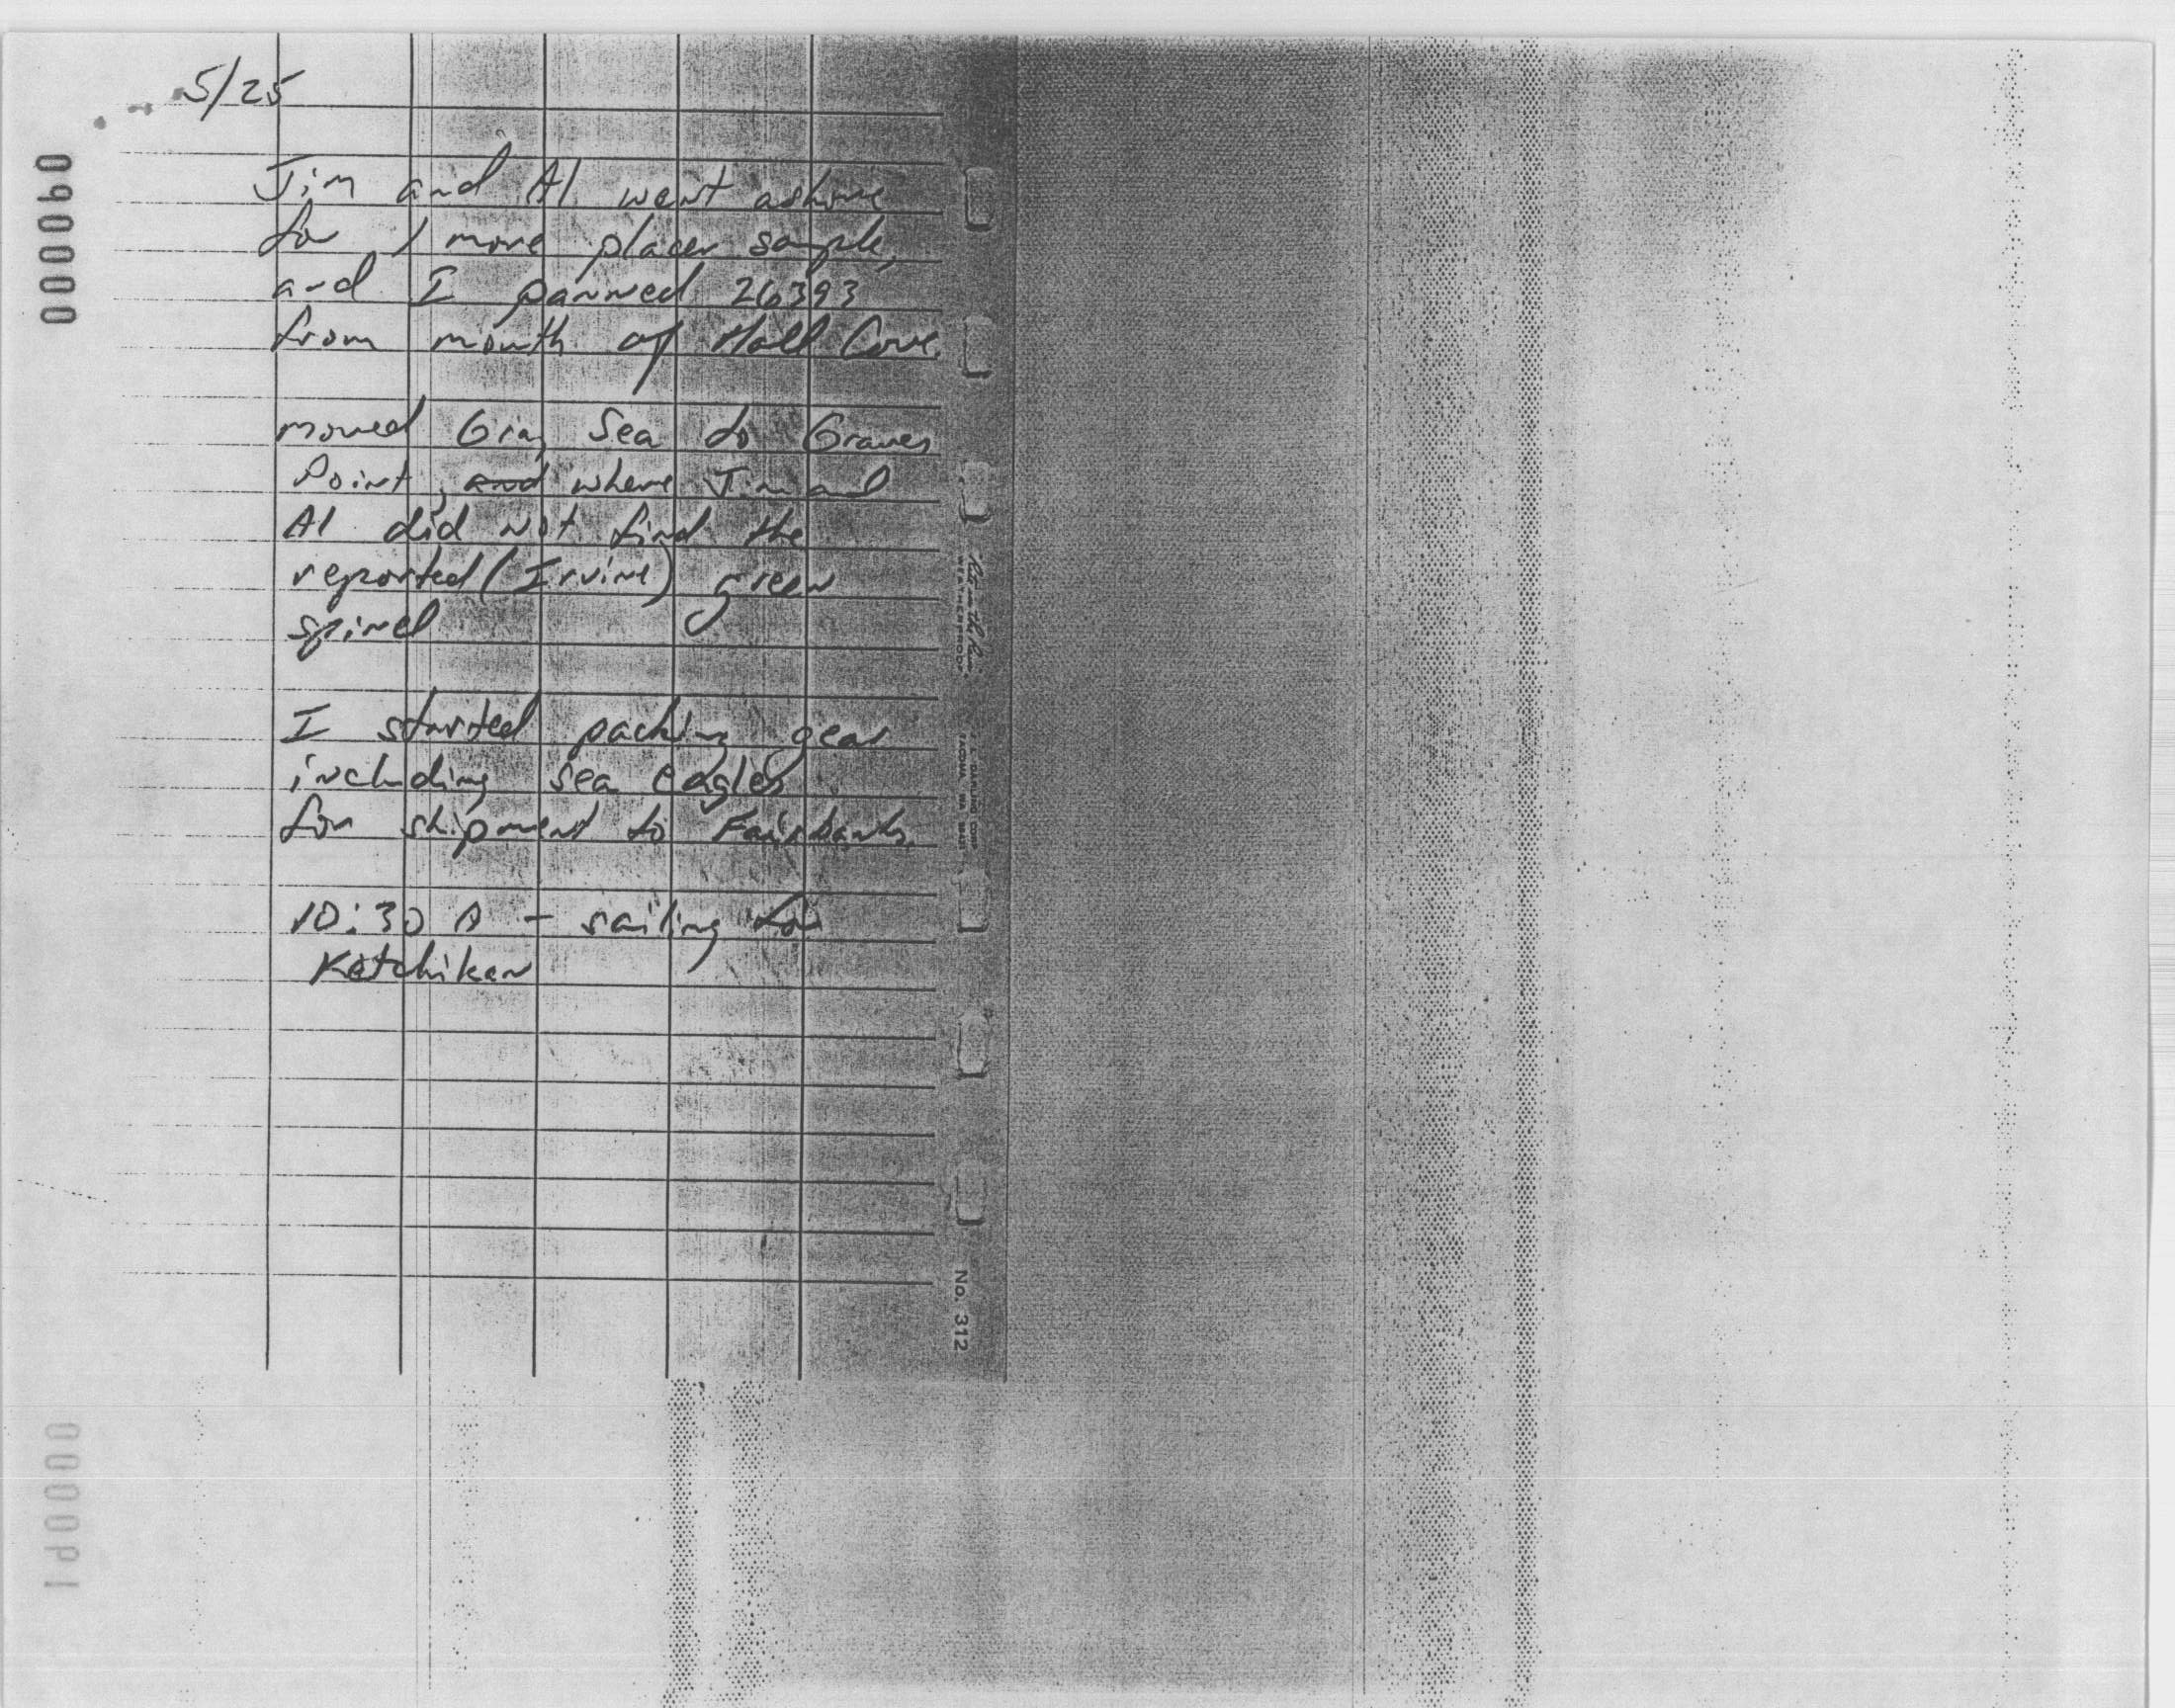 5/25
Jim and Al went ashore
for 1 more placer sample,
and I panned 26393
from mouth of Hall Cove.
moved Gray Sea to Graves
Point, and where Jim and
Al did not find the
reported (Irvine) green
spinel
I started packing gear
including sea eagles
for shipment to Fairbanks.
10:30 A - sailing for
Ketchikan
000060
WEATHERPROOF
J. L. DARLING CORP
TACOMA, WA
No. 312